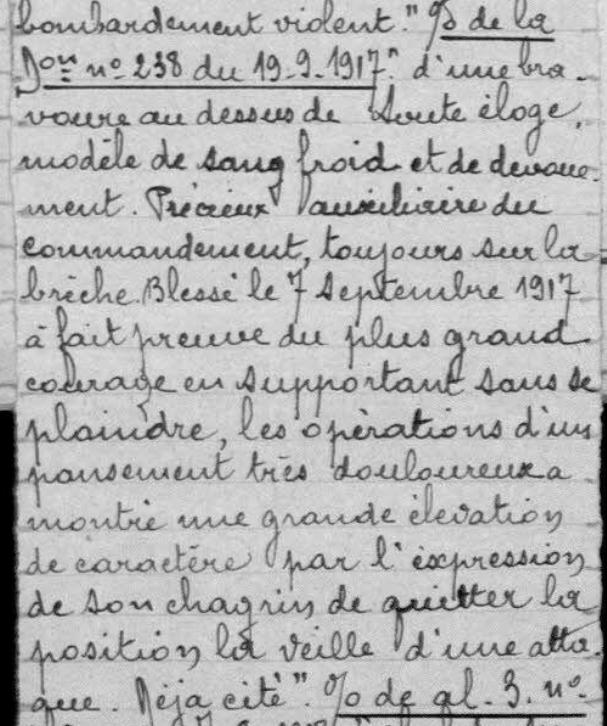 bombardement violent." % de la
Don nº 238 du 19.9.1917." d'une bra-
voure au dessus de toute éloge,
modèle de sang froid et de devoue-
ment. Précieux auxiliaire du
commandement, toujours sur la
brèche. Blessé le 7 Septembre 1917
à fait preuve du plus grand
courage en supportant sans se
plaindre, les opérations d'un
pansement très douloureux a
montré une grande élevation
de caractère par l'expression
de son chagrin de quitter la
position la veille d'une atta-
que. Déja cité". % de gl. 3. nº